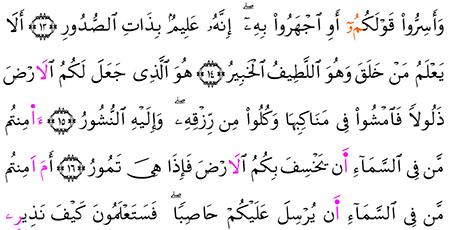 وَأَسِرُّواْ قَوْلَكُمُۥٓ أَوِ ٱجْهَرُواْ بِهِۦٓۖ إِنَّهُۥ عَلِيمُۢ بِذَاتِ ٱلصُّدُورِ ۝١٣ أَلَا
يَعْلَمُ مَنْ خَلَقَ وَهُوَ ٱللَّطِيفُ ٱلْخَبِيرُ ۝١٤ هُوَ ٱلَّذِى جَعَلَ لَكُمُ ٱلَارْضَ
ذَلُولاً فَٱمْشُواْ فِى مَنَاكِبِهَا وَكُلُواْ مِن رِّزْقِهِۦۖ وَإِلَيْهِ ٱلنُّشُورُ ۝١٥ ءَا۬مِنتُم
مَّن فِى ٱلسَّمَآءِ ا۬ن يَّخْسِفَ بِكُمُ ٱلَارْضَ فَإِذَا هِىَ تَمُورُ ۝١٦ أَمَ اَمِنتُم
مَّن فِى ٱلسَّمَآءِ ا۬ن يُرْسِلَ عَلَيْكُمْ حَاصِبٗاۖ فَسَتَعْلَمُونَ كَيْفَ نَذِيرِۦ